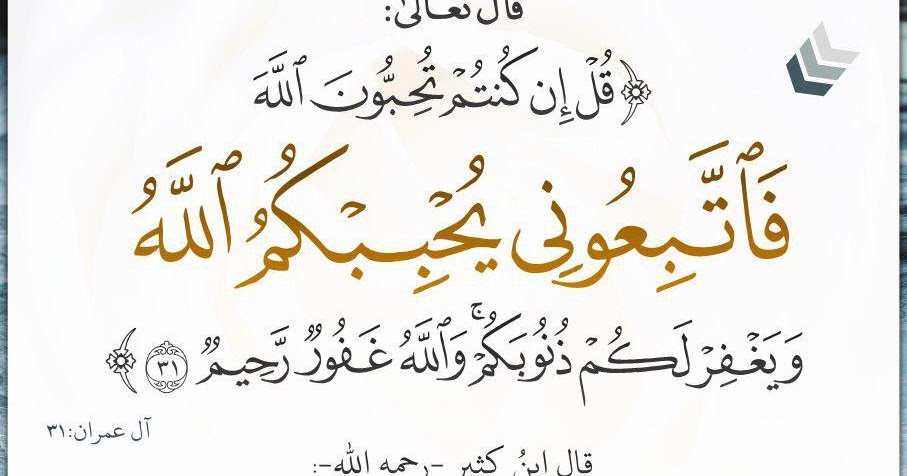 قال تعالى:
﴿قُلْ إِن كُنتُمْ تُحِبُّونَ ٱللَّهَ
فَٱتَّبِعُونِى يُحْبِبْكُمُ ٱللَّهُ
وَيَغْفِرْ لَكُمْ ذُنُوبَكُمْ ۚ وَٱللَّهُ غَفُورٌ رَّحِيمٌ ٣١﴾
آل عمران:٣١
قال ابنُ كثير -رحمه الله-: